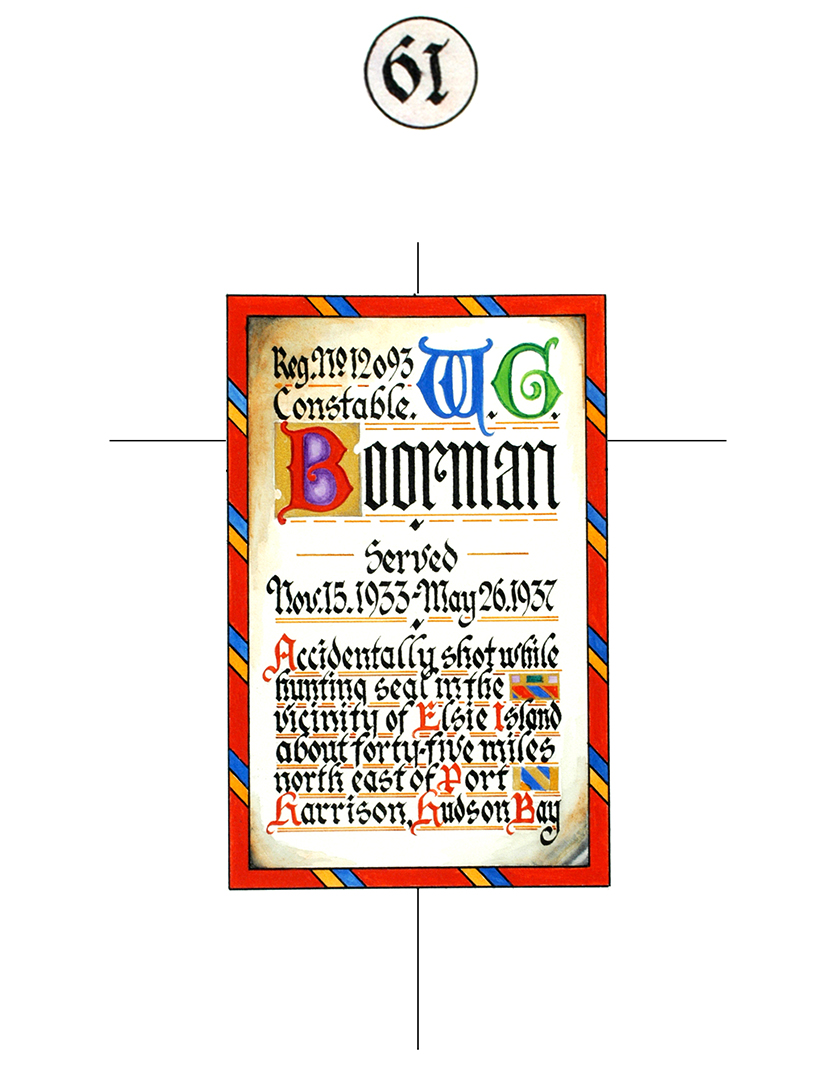 61
Reg. No 12093 W. G.
Constable.
Boorman
Served
Nov. 15. 1933-May 26. 1937
Accidentally shot while
hunting seal in the
vicinity of Elsie Island
about forty-five miles
north east of Port
Harrison, Hudson Bay